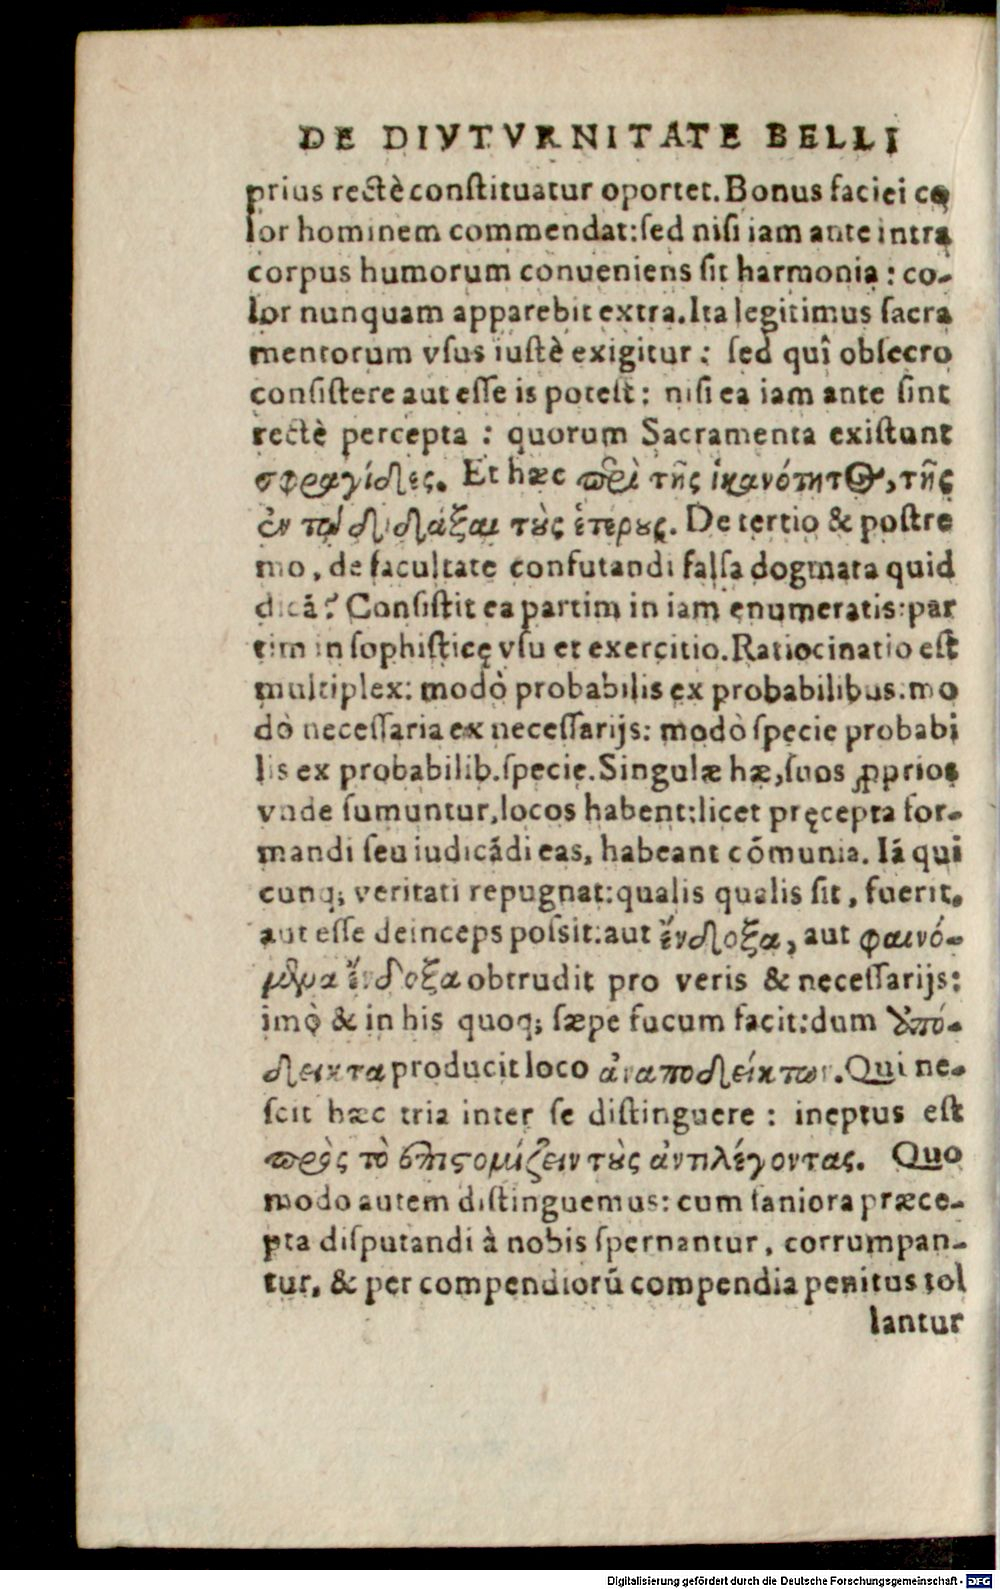 DE DIVTVRNITATE BELLI
prius rectè constituatur oportet. Bonus faciei co
lor hominem commendat: sed nisi iam ante intra
corpus humorum conueniens sit harmonia: co-
lor nunquam apparebit extra. Ita legitimus sacra
mentorum vsus iustè exigitur: sed quî obsecro
consistere aut esse is potest: nisi ea iam ante sint
rectè percepta: quorum Sacramenta existunt
σφραγίδες. Et hæc περὶ τῆς ἱκανότητος, τῆς
ἐν τῷ διδάξαι τοὺς ἑτέρους. De tertio & postre
mo, de facultate confutandi falsa dogmata quid
dicā? Consistit ea partim in iam enumeratis: par
tim in sophisticę vsu et exercitio. Ratiocinatio est
multiplex: modò probabilis ex probabilibus. mo
dò necessaria ex necessarijs: modò specie probabi
lis ex probabilib. specie. Singulæ hæ, suos ꝓprios
vnde sumuntur, locos habent: licet pręcepta for-
mandi seu iudicādi eas, habeant cōmunia. Iā qui
cunq; veritati repugnat: qualis qualis sit, fuerit,
aut esse deinceps possit: aut ἔνδοξα, aut φαινό-
μενα ἔνδοξα obtrudit pro veris & necessarijs:
imò & in his quoq; sæpe fucum facit: dum ὑπό-
δεικτα producit loco ἀναποδείκτων. Qui ne-
scit hæc tria inter se distinguere: ineptus est
πρὸς τὸ ἐπιστομίζειν τοὺς ἀντιλέγοντας. Quo
modo autem distinguemus: cum saniora præce-
pta disputandi à nobis spernantur, corrumpan-
tur, & per compendiorū compendia penitus tol
lantur
Digitalisierung gefördert durch die Deutsche Forschungsgemeinschaft - DFG